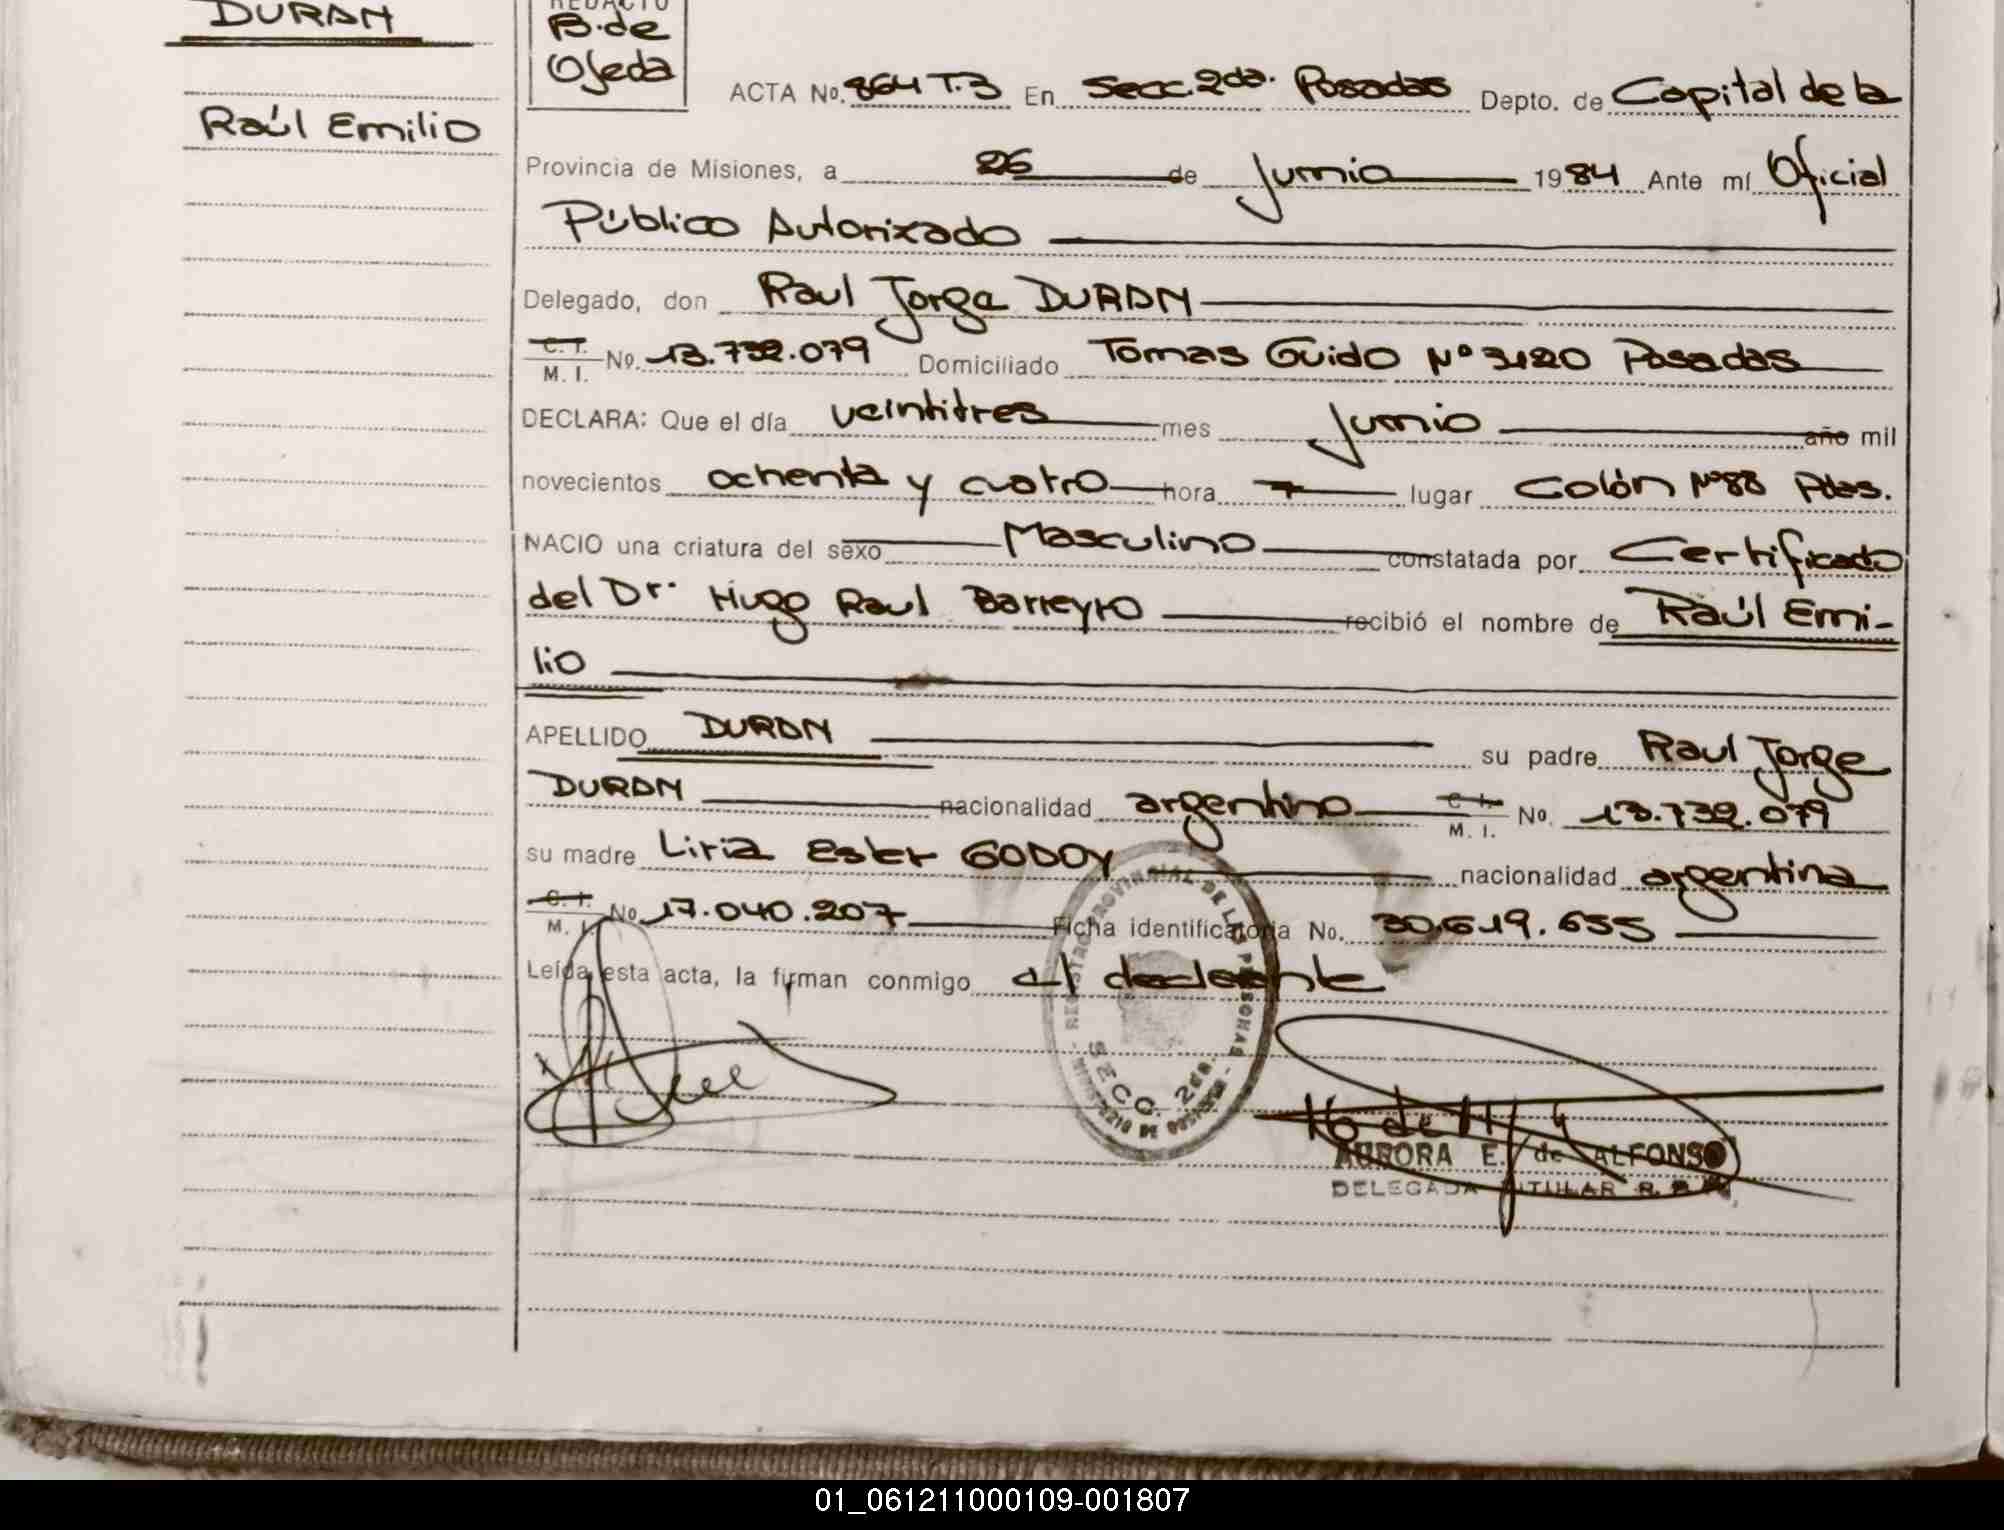 DURAN
Raúl Emilio
REDACTO
B. de
Ojeda
ACTA No. 864 T.3 En Secc. 2da. Posadas Depto. de Capital de la
Provincia de Misiones, a 26 de Junio 1984 Ante mí Oficial
Público Autorizado
Delegado, don Raul Jorge DURAN
C. I. M. I. No. 13.732.079 Domiciliado Tomas Guido Nº 3120 Posadas
DECLARA: Que el día veintitres mes Junio año mil
novecientos ochenta y cuatro hora 7 lugar Colón Nº88 Pdas.
NACIO una criatura del sexo Masculino constatada por Certificado
del Dr. Hugo Raul Barreyro recibió el nombre de Raúl Emi-
lio
APELLIDO DURAN su padre Raul Jorge
DURAN nacionalidad argentino C. I. M. I. No. 13.732.079
su madre Liria Ester GODOY nacionalidad argentina
C. I. M. I. No. 17.040.207 Ficha identificatoria No. 30.619.655
Leída esta acta, la firman conmigo el declarante
REGISTRO PROVINCIAL DE LAS PERSONAS
SECC. 2da.
AURORA E. de ALFONSO
DELEGADA TITULAR R. P. P.
01_061211000109-001807